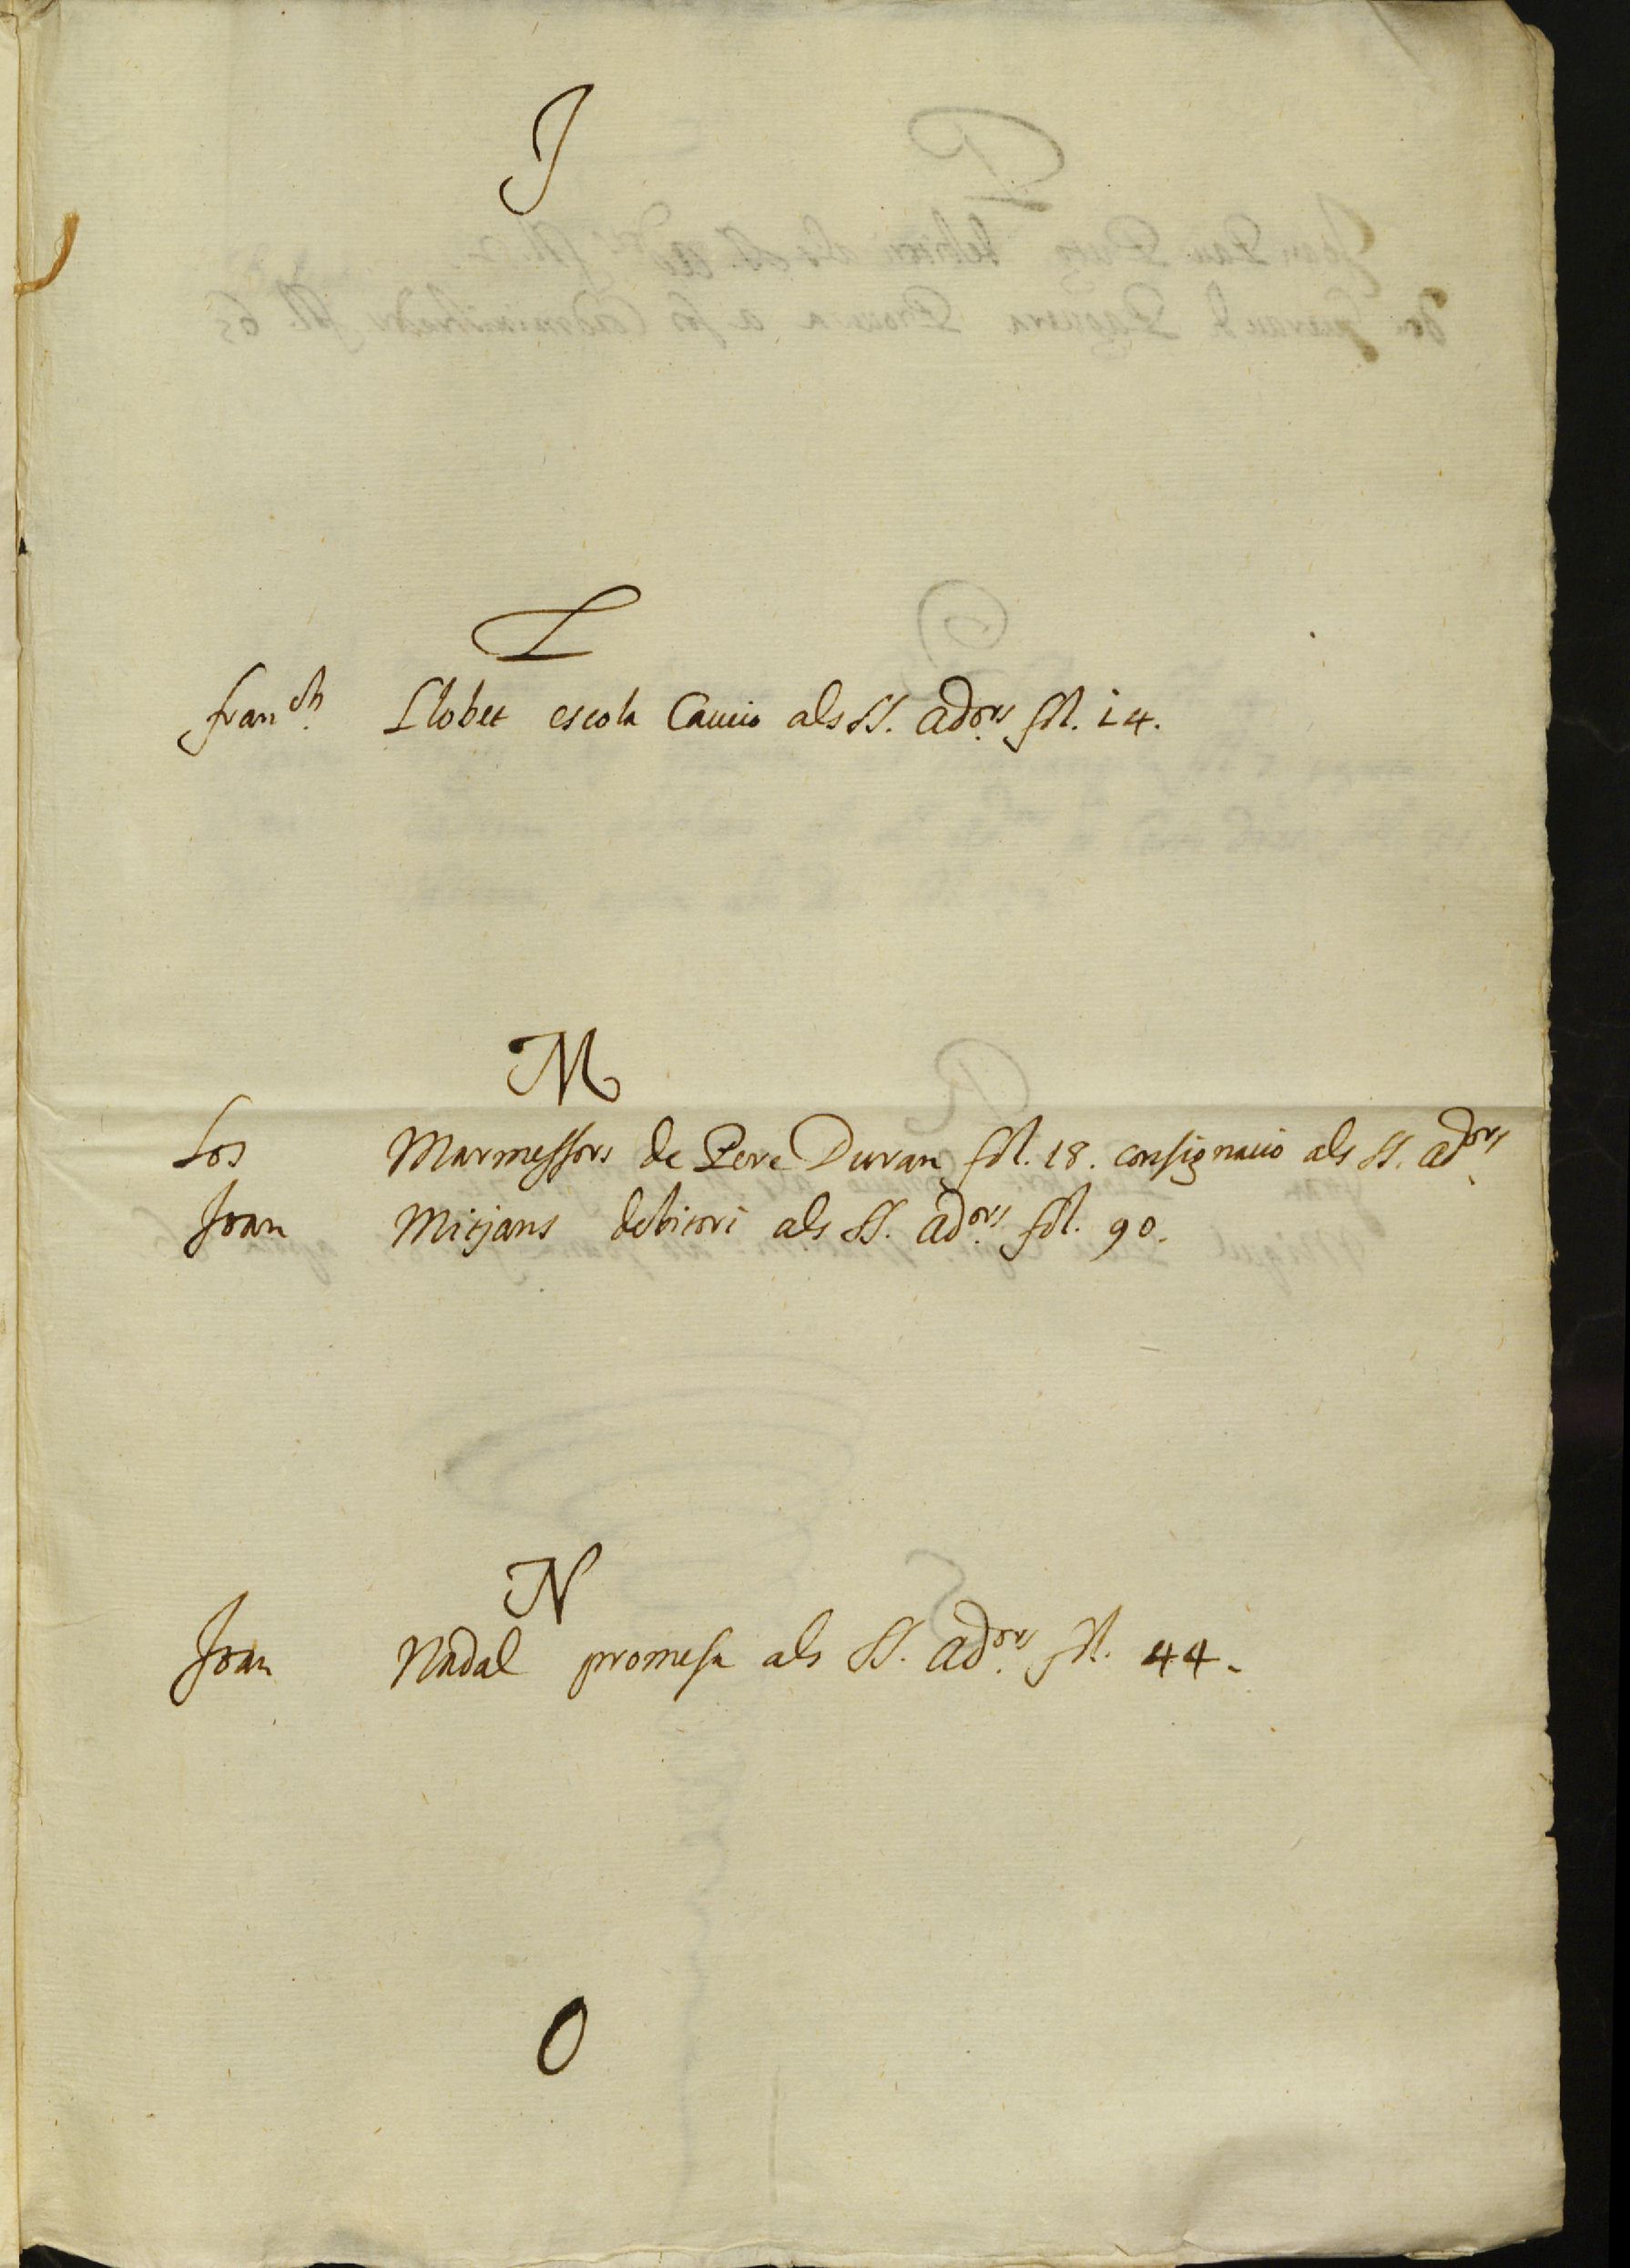 J
L
Franch. Llobet escola Caucio als SS. Adors. fol. 14.
M
Los Marmessors de Pere Duran fol. 18. consignacio als SS. Adors.
Joan Mitjans debitori als SS. Adors. fol. 90.
N
Joan Nadal promesa als SS. Adors. fol. 44.
O